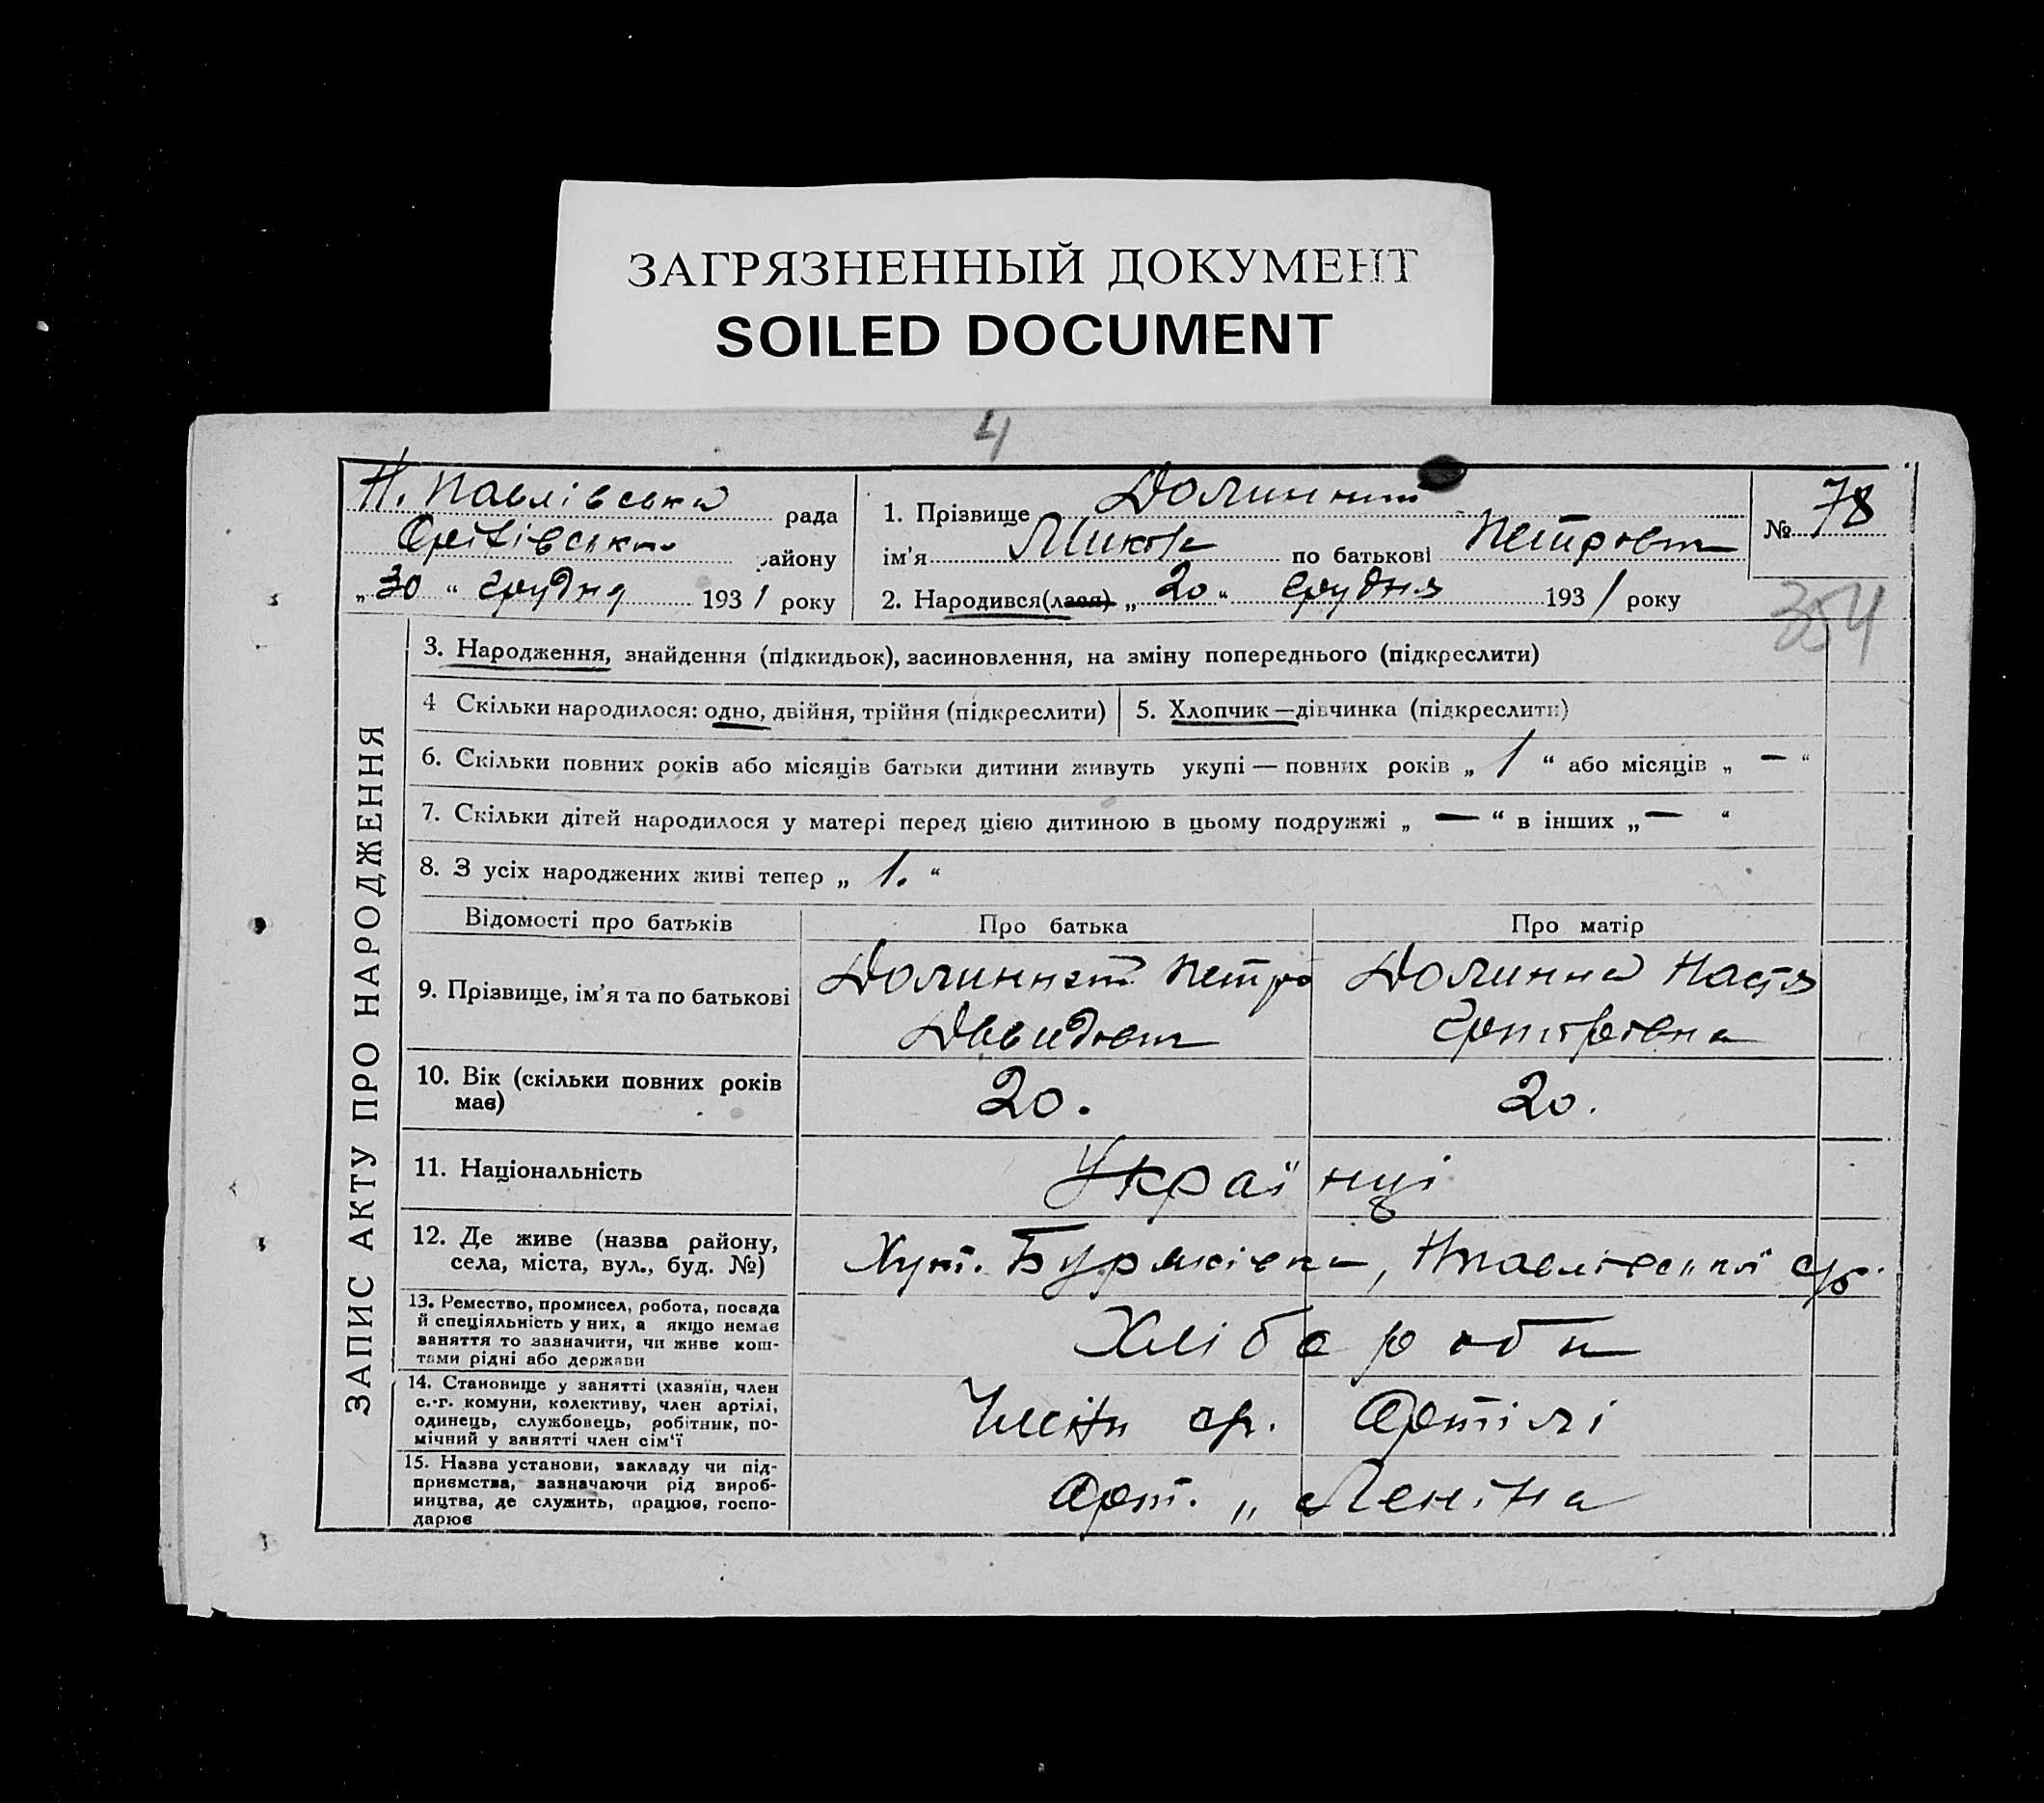 ЗАГРЯЗНЕННЫЙ ДОКУМЕНТ
SOILED DOCUMENT
4
Н. Павлівська рада
Оріхівськ району
„30“ грудня 1931 року
1. Прізвище Долинний
ім'я Микола по батькові Петрович
№ 78
2. Народився(лася) „20“ грудня 1931 року
354
ЗАПИС АКТУ ПРО НАРОДЖЕННЯ
3. Народження, знайдення (підкидьок), засиновлення, на зміну попереднього (підкреслити)
4 Скільки народилося: одно, двійня, трійня (підкреслити)
5. Хлопчик—дівчинка (підкреслити)
6. Скільки повних років або місяців батьки дитини живуть укупі — повних років „ 1 “ або місяців „ — “
7. Скільки дітей народилося у матері перед цією дитиною в цьому подружжі „ — “ в інших „ — “
8. З усіх народжених живі тепер „ 1. “
Відомості про батьків
Про батька
Про матір
9. Прізвище, ім'я та по батькові
Долинний Петро
Давидович
Долинна Настя
10. Вік (скільки повних років
має)
20.
20.
11. Національність
Українці
12. Де живе (назва району,
села, міста, вул., буд. №)
Хут.
13. Ремество, промисел, робота, посада
й спеціяльність у них, а якщо немає
заняття то зазначити, чи живе кош-
тами рідні або держави
Хлібороби
14. Становище у занятті (хазяїн, член
с.-г. комуни, колективу, член артілі,
одинець, службовець, робітник, по-
мічний у занятті член сім'ї
Члени с.г. Артілі
15. Назва установи, закладу чи під-
приємства, зазначаючи рід вироб-
ництва, де служить, працює, госпо-
дарює
Арт. „ Леніна